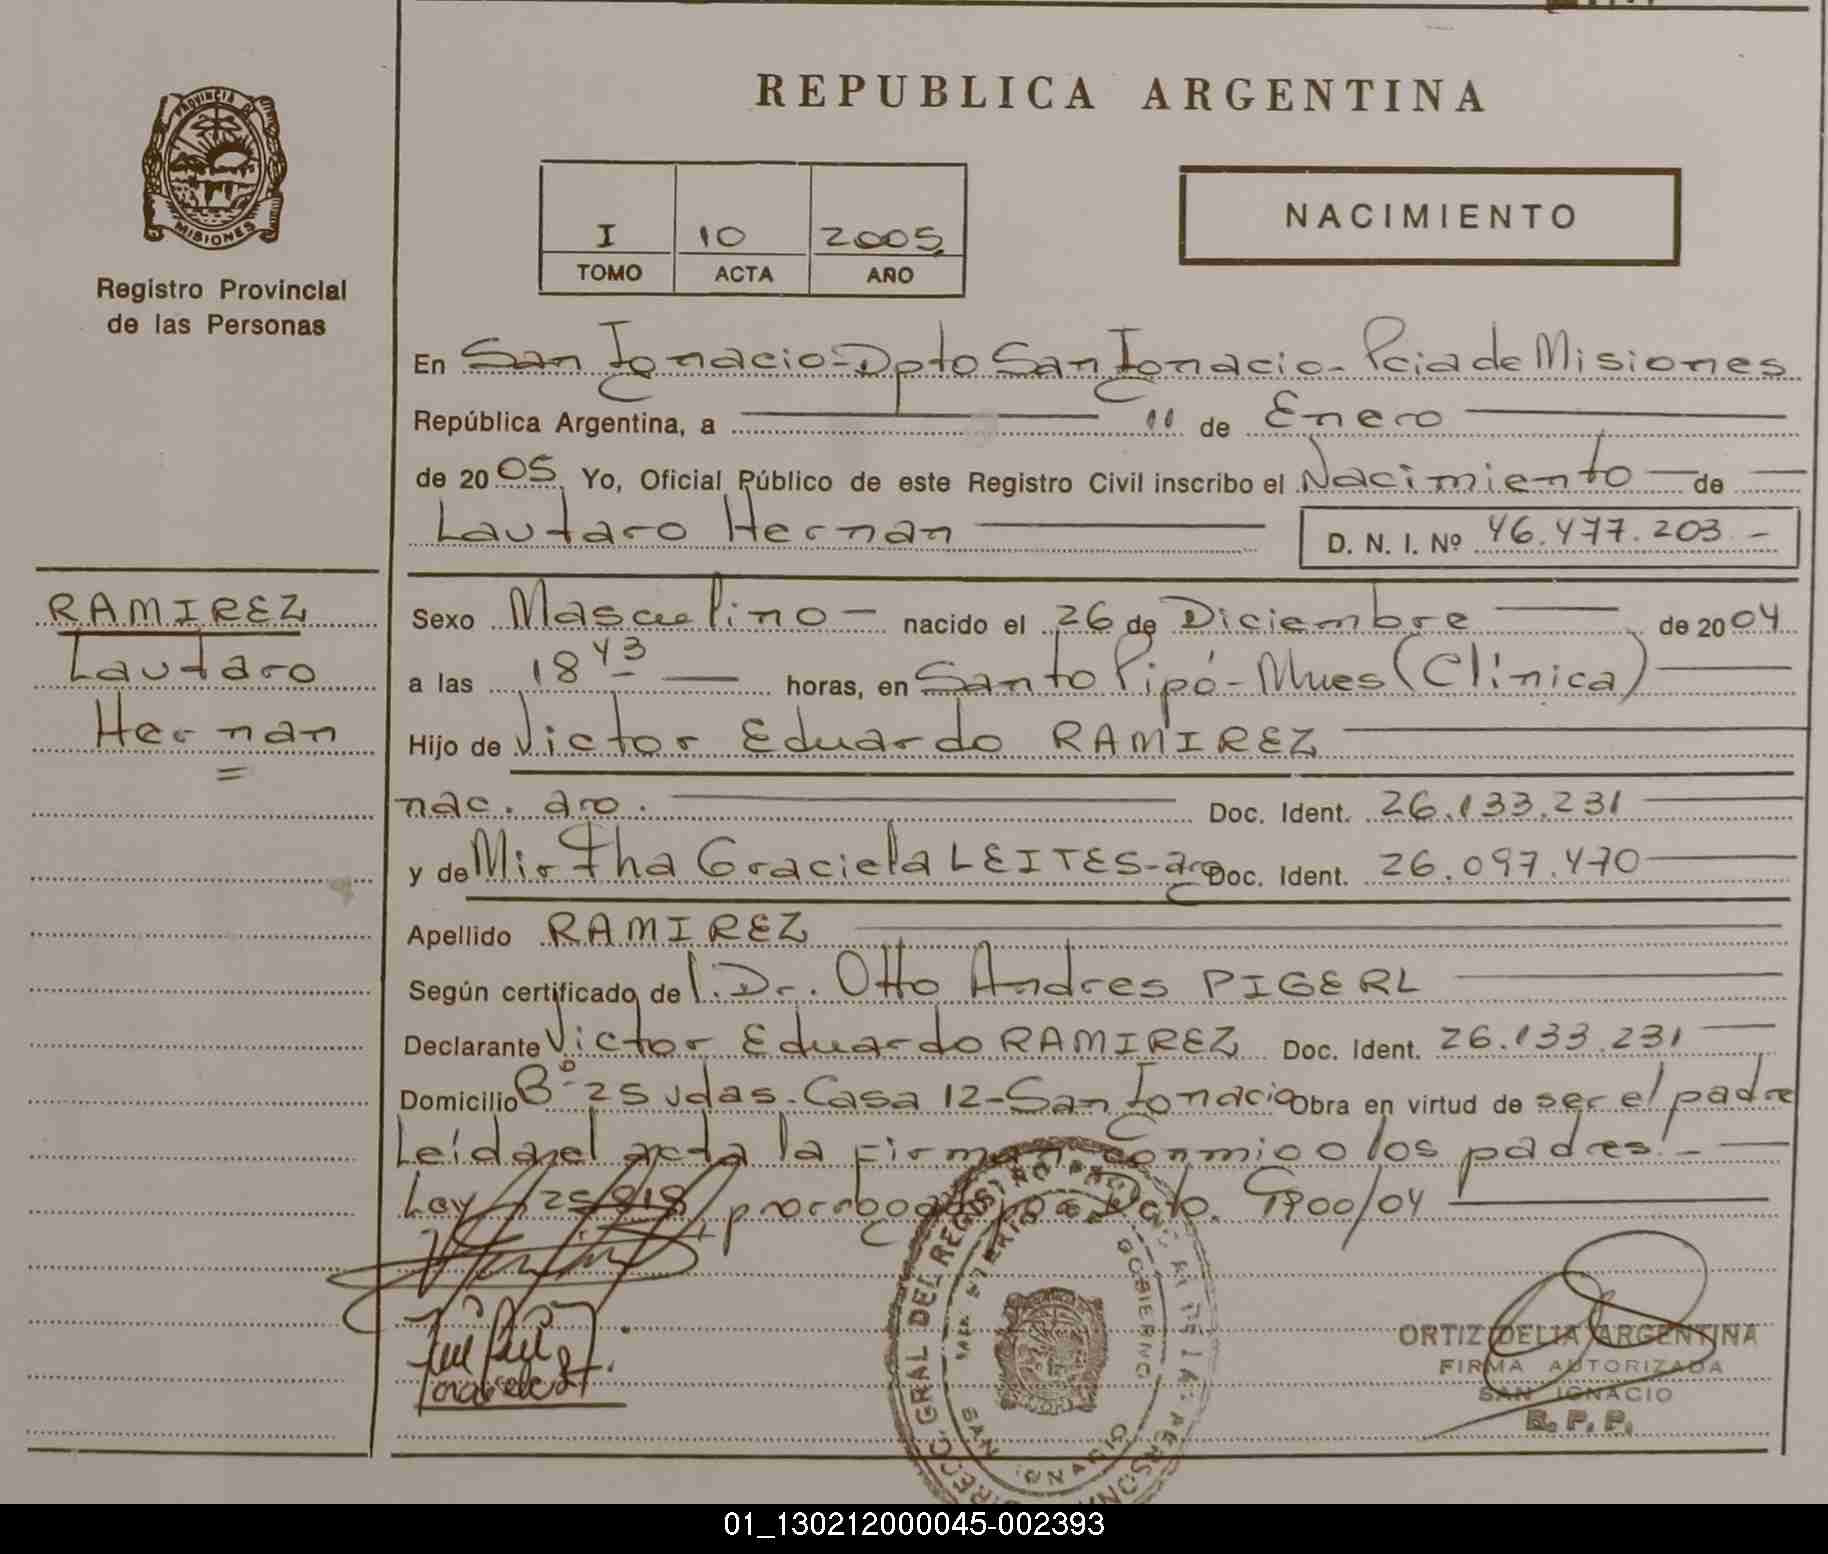 PROVINCIA DE
MISIONES
Registro Provincial
de las Personas
REPUBLICA ARGENTINA
I 10 2005
TOMO ACTA AÑO
NACIMIENTO
En San Ignacio - Dpto San Ignacio - Pcia de Misiones
República Argentina, a 11 de Enero
de 2005 Yo, Oficial Público de este Registro Civil inscribo el Nacimiento de
Lautaro Hernan D. N. I. Nº 46.477.203 -
RAMIREZ
Lautaro
Hernan
Sexo Masculino - nacido el 26 de Diciembre de 2004
a las 18 43 horas, en Santo Pipó - Mnes (Clínica)
Hijo de Victor Eduardo RAMIREZ
nac. arg. Doc. Ident. 26.133.231
y de Mirtha Graciela LEITES - arg Doc. Ident. 26.097.470
Apellido RAMIREZ
Según certificado de l. Dr. Otto Andres PIGERL
Declarante Victor Eduardo RAMIREZ Doc. Ident. 26.133.231
Domicilio Bº 25 vdas. Casa 12 - San Ignacio Obra en virtud de ser el padre
Leída el acta la firman conmigo los padres. -
Ley 25.819, prorrogada por Dcto. 1900/04
DIRECC. GRAL DEL REGISTRO
GOBIERNO
SAN IGNACIO
ORTIZ DELIA ARGENTINA
FIRMA AUTORIZADA
SAN IGNACIO
R. P. P.
01_130212000045-002393